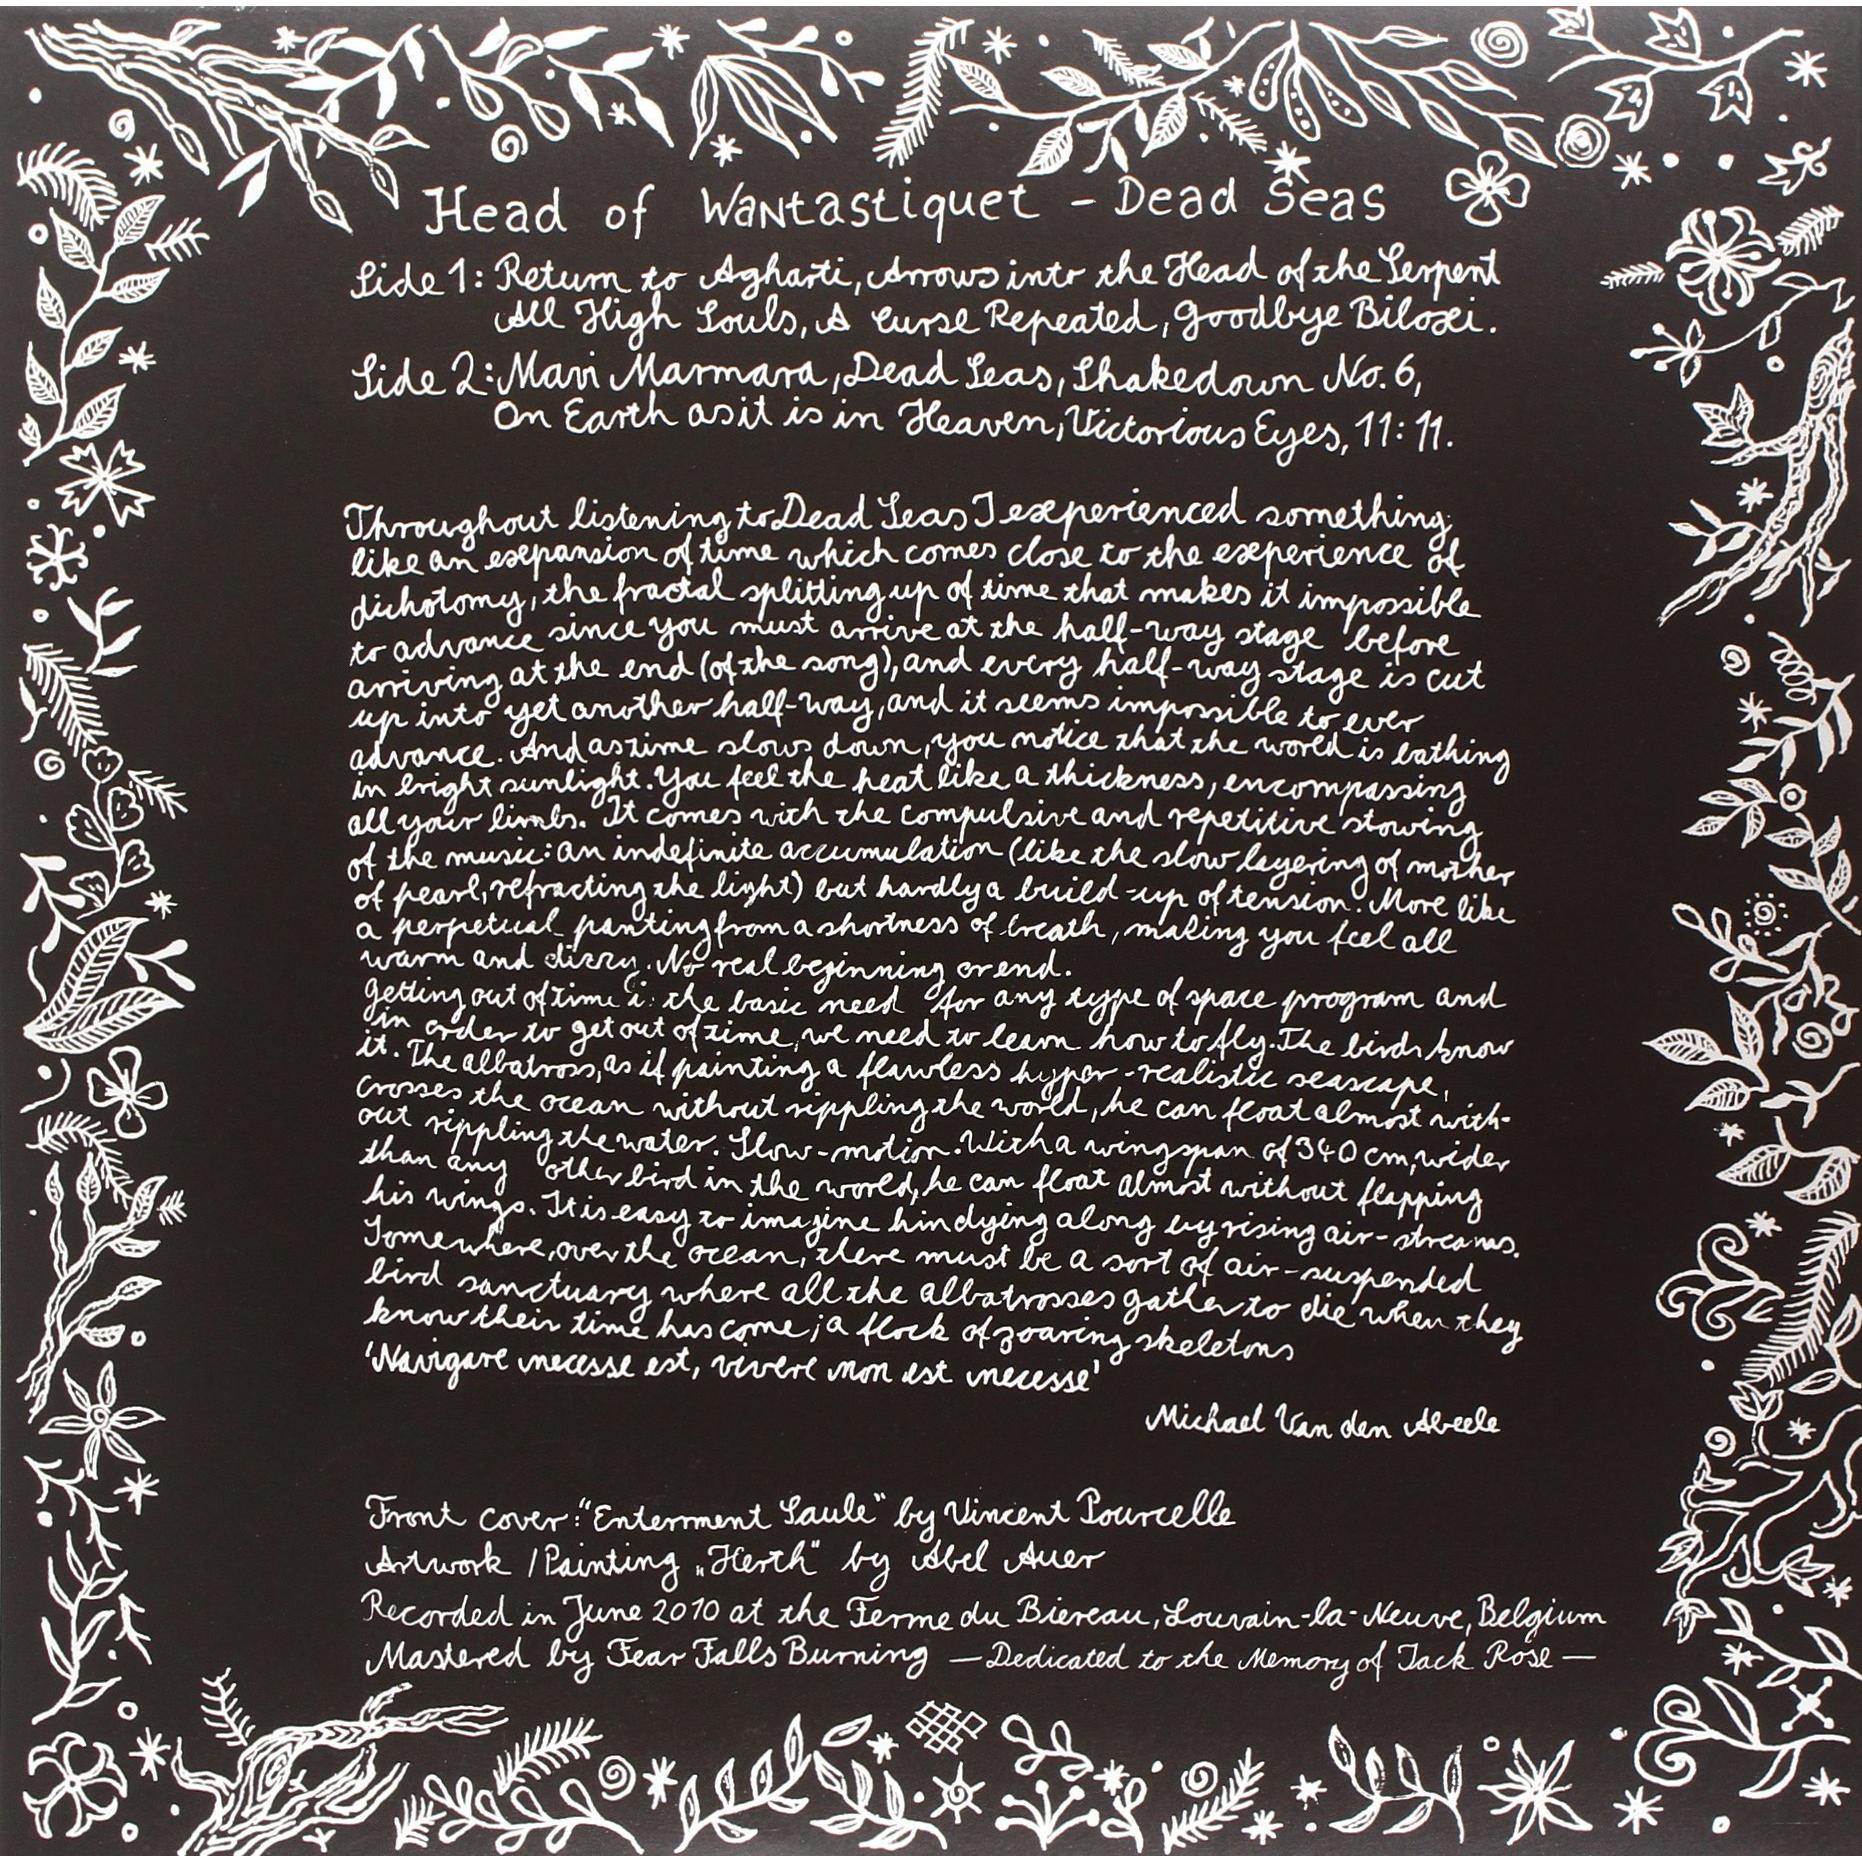 Head of Wantastiquet - Dead Seas
Side 1: Return to Agharti, Arrows into the Head of the Serpent
All High Souls, A Curse Repeated, Goodbye Biloxi.
Side 2: Mavi Marmara, Dead Seas, Shakedown No. 6,
On Earth as it is in Heaven, Victorious Eyes, 11:11.
Throughout listening to Dead Seas I experienced something
like an expansion of time which comes close to the experience of
dichotomy, the fractal splitting up of time that makes it impossible
to advance since you must arrive at the half-way stage before
arriving at the end (of the song), and every half-way stage is cut
up into yet another half-way, and it seems impossible to ever
advance. And as time slows down, you notice that the world is bathing
in bright sunlight. You feel the heat like a thickness, encompassing
all your limbs. It comes with the compulsive and repetitive stowing
of the music: an indefinite accumulation (like the slow layering of mother
of pearl, refracting the light) but hardly a build-up of tension. More like
a perpetual panting from a shortness of breath, making you feel all
warm and dizzy. No real beginning or end.
Getting out of time is the basic need for any type of space program and
in order to get out of time, we need to learn how to fly. The birds know
it. The albatross, as if painting a flawless hyper-realistic seascape,
crosses the ocean without rippling the world, he can float almost with-
out rippling the water. Slow-motion. With a wingspan of 340 cm, wider
than any other bird in the world, he can float almost without flapping
his wings. It is easy to imagine him dying along by rising air-streams.
Somewhere, over the ocean, there must be a sort of air-suspended
bird sanctuary where all the albatrosses gather to die when they
know their time has come; a flock of zoaring skeletons
'Navigare necesse est, vivere non est necesse'
Michael Van den Abeele
Front cover: "Enterrment Saule" by Vincent Pourcelle
Artwork / Painting „Herth" by Abel Auer
Recorded in June 2010 at the Ferme du Biereau, Louvain-la-Neuve, Belgium
Mastered by Fear Falls Burning — Dedicated to the Memory of Jack Rose —